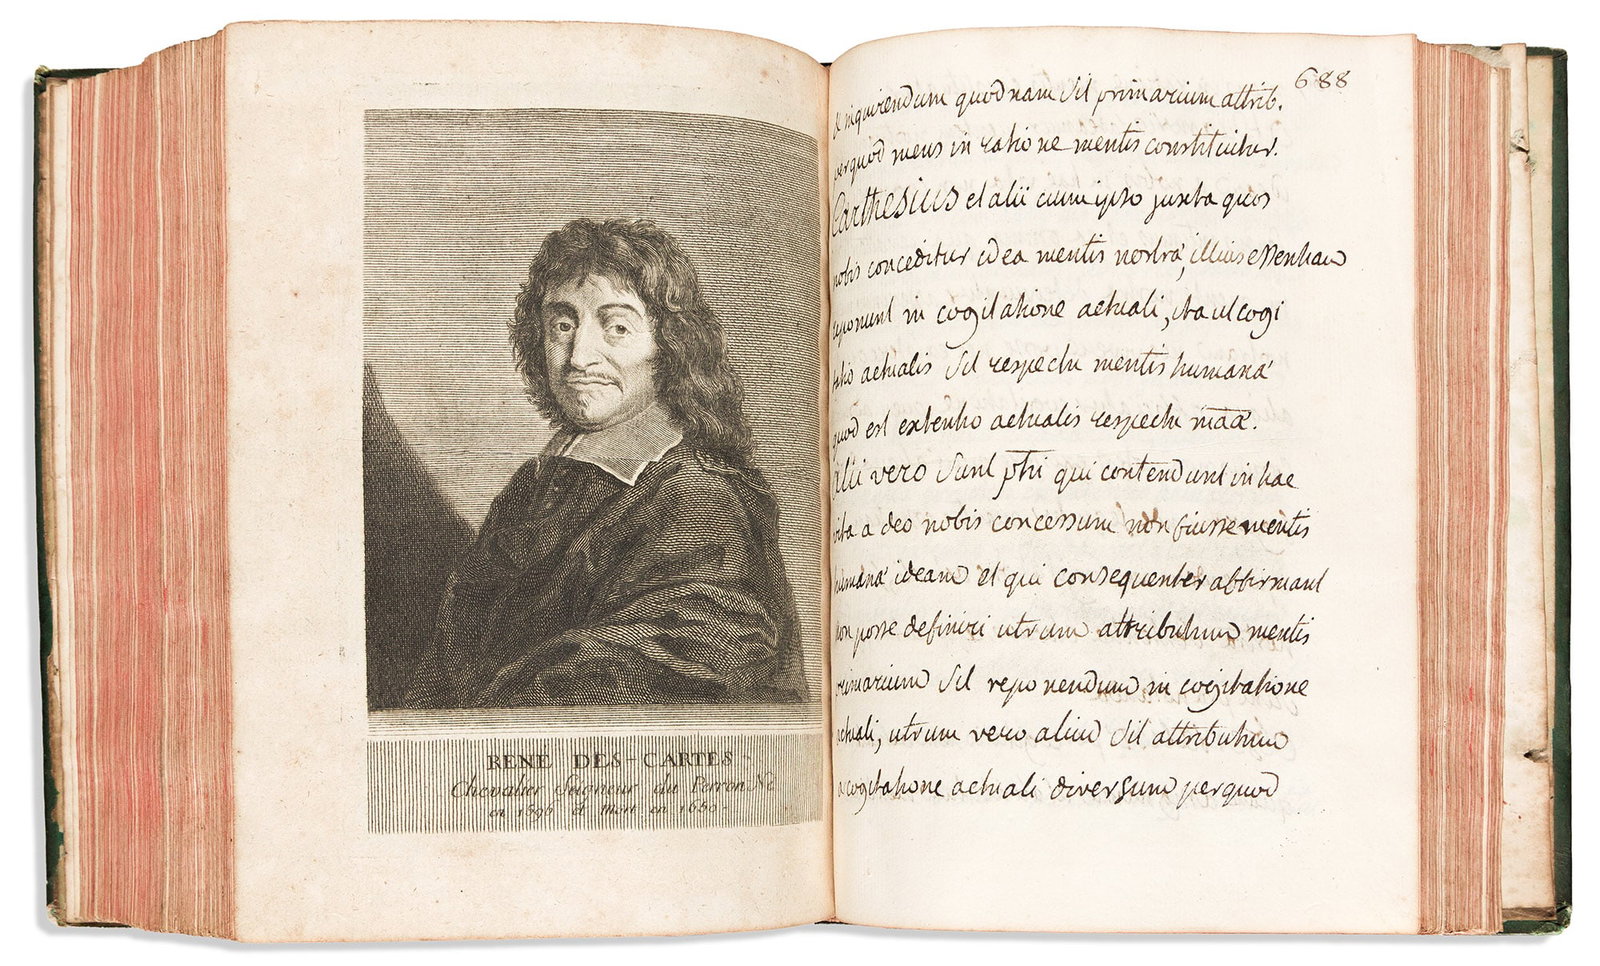 RENE DES-CARTES
Chevalier Seigneur du Perron Né
en 1596 et Mort en 1650.
688
& inquirendum quodnam sit primarium attrib.
perquod mens in ratione mentis constituitur.
Carthesius et alii cum ipso juxta quos
nobis conceditur idea mentis nostrá, illius essentiam
reponunt in cogitatione actuali, ita ut cogi
tatio actualis sit respectu mentis humaná
quod est extentio actualis respectu maã.
Alii vero sunt phi qui contendunt in hac
vita a deo nobis concessum non fuisse mentis
humaná ideam et qui consequenter affirmant
non posse definiri utrum attributum mentis
primarium sit reponendum in cogitatione
actuali, utrum vero aliud sit attributum
a cogitatione actuali diversum perquod